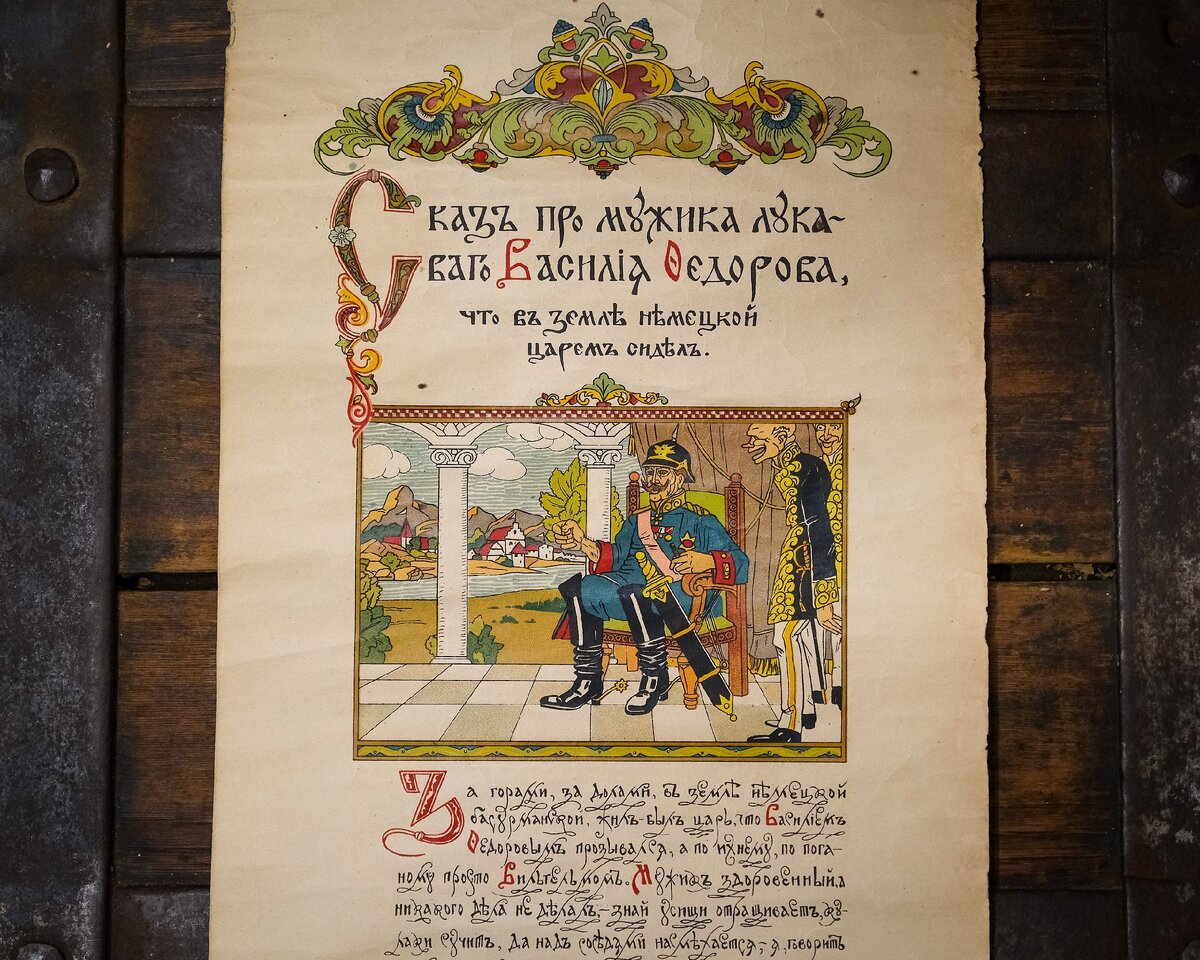 Сказъ про мужика лука-
ваго Василія Ѳедорова,
что въ землѣ нѣмецкой
царемъ сидѣлъ.
За горами, за долами, въ землѣ нѣмецкой
басурманской, жилъ-былъ царь, что Василіемъ
Ѳедоровымъ прозывался, а по ихнему, по пога-
ному просто Вильгельмомъ. Мужикъ здоровенный, а
никакого дѣла не дѣлалъ,- знай усищи отращиваетъ, ку-
лаки сучитъ, да надъ сосѣдями насмѣхается,- я, говоритъ